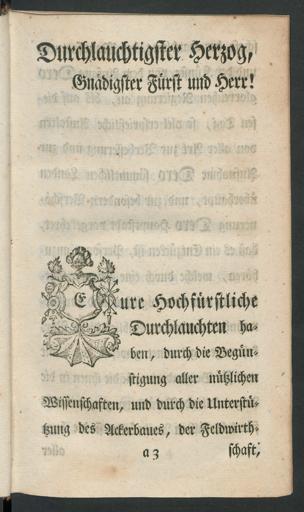 Durchlauchtigster Herzog,
Gnädigster Fürst und Herr!
Eure Hochfürstliche
Durchlauchten ha-
ben, durch die Begün-
stigung aller nützlichen
Wissenschaften, und durch die Unterstü-
tzung des Ackerbaues, der Feldwirth-
a 3 schaft,